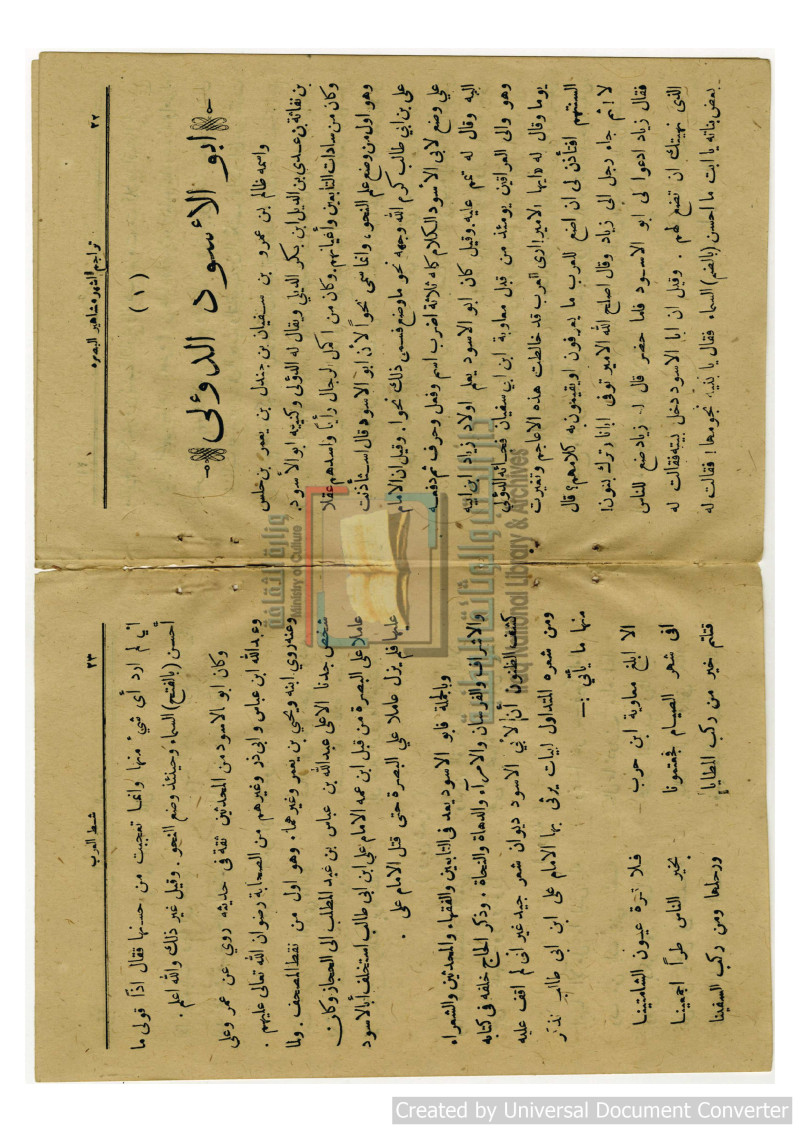 ٢٢
تراجم اشهر مشاهير البصره
(١)
ابو الأسود الدوئلى
واسمه ظالم بن عمرو بن سفيان بن جندل بن يعمر بن حلس
بن نفاثة بن عدى بن الديل ابن بكر الديلي ويقال له الدؤلى وكنيته ابو الأسود.
وكان من سادات التابعين وأعيانهم. وكان من اكمل الرجال رأيا واسدهم عقلا
وهو اول من وضع علم النحو، وانما سمى نحواً لأن ابو الاسود قال استأذنت
على بن ابي طالب كرم الله وجهه نحو ما وضع فسمى ذلك نحوا. وقيل ان الامام
علي وضع لابى الأسود الكلام كله ثلاثة اضرب اسم وفعل وحرف ثم دفعه
اليه وقال له تمم عليه. وقيل كان ابو الاسود يعلم اولاد زياد ابن ابيه
وهو والى العراقين يومئذ من قبل معاوية ابن ابى سفيان فجائه الدؤلى
يوما وقال له ايها الامير ارى العرب قد خالطت هذه الاعاجم وتغيرت
السنتهم افتأذن لى ان اضع للعرب ما يعرفون او يقيمون به كلامهم؟ قال
لا! ثم جاء رجل الى زياد وقال اصلح الله الامير توفى ابانا وترك بنون!
فقال زياد ادعوا لى ابو الاسود فلما حضر قال له زياد ضع للناس
الذى نهيتك ان تضع لهم. وقيل ان ابا الاسود دخل بيته فقالت له
بعض بناته يا ابت ما احسن (بالضم) السماء فقال يا بنية نجومها! فقالت له
شط العرب
٢٣
أيا لم ارد أى شيْ منها وانما تعجبت من حسنها فقال اذاً قولى ما
أحسن (بالفتح) السماء وحينئذ وضع النحو. وقيل غير ذلك والله اعلم.
وكان ابو الاسود من المحدثين ثقة فى حديثه روي عن عمر وعلى
وعبدالله ابن عباس وابى ذر وغيرهم من الصحابة رضوان الله تعالى عليهم.
وعنه روي ابنه ويحيى بن يعمر وغيرهما. وهو اول من نقط المصحف. ولما
شخص جدنا الاعلى عبدالله بن عباس بن عبد المطلب الى الحجاز وكان
عاملا على البصرة من قبل ابن عمه الامام علي بن ابى طالب استخلف أبا الاسود
عليها فلم يزل عاملا علي البصرة حتى قتل الامام على.
وبالجملة فابو الاسود يعد فى التابعين والفقهاء والمحدثين والشعراء
والاشراف والفرسان والامرآء والدهاة والنحاة. وذكر الحاج خلفه فى كتابه
كشف الظنون أن لأبي الاسود ديوان شعر جيد غير انى لم اقف عليه
ومن شعره المتداول ابيات يرثى بها الامام على ابن ابى طالب نذكر
منها ما يأتي :ـ
الا ابلغ معاوية ابن حرب فلا قرة عيون الشامتينا
افى شهر الصيام فجعتمونا بخير الناس طراً اجمعينا
قتلتم خير من ركب المطايا ورحلها ومن ركب السفينا
وزارة الثقافة
Ministry of Culture
دار الكتب والوثائق الوطنية
Iraq National Library & Archives
Created by Universal Document Converter